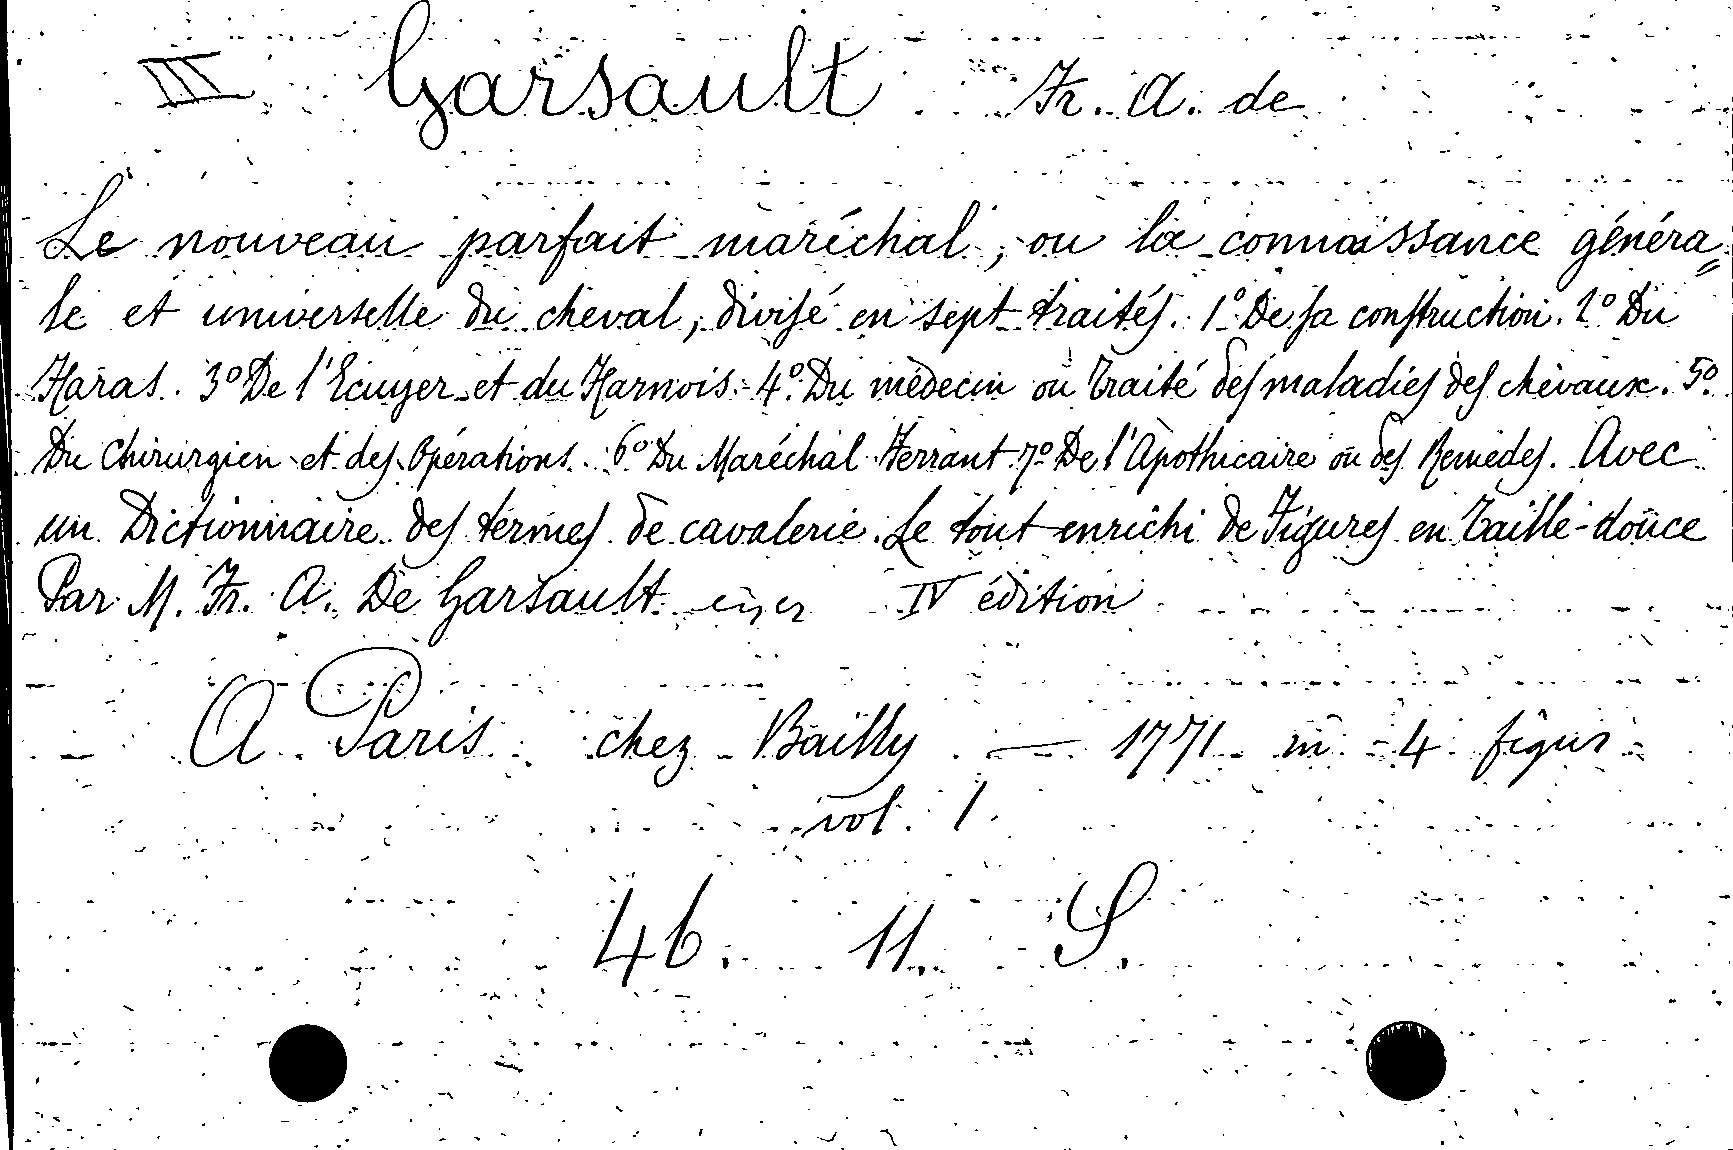 III Garsault Fr. A. de
Le nouveau parfait maréchal, ou la connaissance généra=
le et universelle du cheval, divisé en sept traités. 1° De sa construction. 2° Du
Haras. 3° De l'Ecuyer et du Harnois. 4° Du médecin ou Traité des maladies des chevaux. 5°
Du Chirurgien et des Opérations. 6° Du Maréchal Ferrant 7° De l'Apothicaire ou des Remèdes. Avec
un Dictionnaire des termes de cavalerie. Le tout enrichi de Figures en Taille-douce
Par M. Fr. A. De Garsault IV édition
A Paris chez Bailly — 1771 in - 4 figur
vol. 1.
46. 11. S.